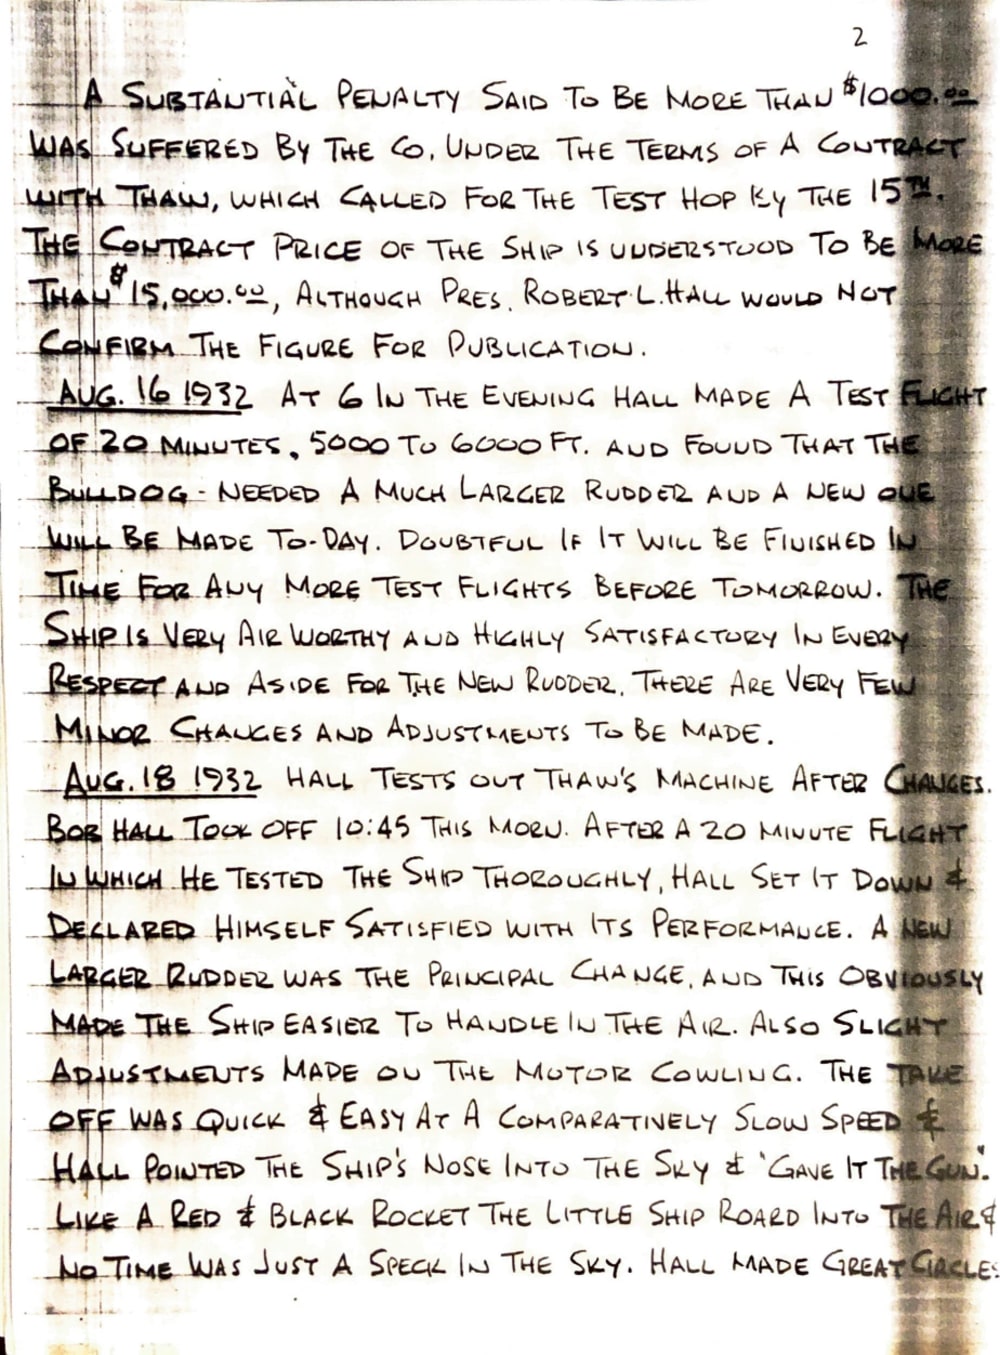 2
A SUBTANTIAL PENALTY SAID TO BE MORE THAN $1000.00
WAS SUFFERED BY THE CO. UNDER THE TERMS OF A CONTRACT
WITH THAW, WHICH CALLED FOR THE TEST HOP BY THE 15TH.
THE CONTRACT PRICE OF THE SHIP IS UNDERSTOOD TO BE MORE
THAN $15,000.00, ALTHOUGH PRES. ROBERT L. HALL WOULD NOT
CONFIRM THE FIGURE FOR PUBLICATION.
AUG. 16 1932 AT 6 IN THE EVENING HALL MADE A TEST FLIGHT
OF 20 MINUTES, 5000 TO 6000 FT. AND FOUND THAT THE
BULLDOG - NEEDED A MUCH LARGER RUDDER AND A NEW ONE
WILL BE MADE TO-DAY. DOUBTFUL IF IT WILL BE FINISHED IN
TIME FOR ANY MORE TEST FLIGHTS BEFORE TOMORROW. THE
SHIP IS VERY AIR WORTHY AND HIGHLY SATISFACTORY IN EVERY
RESPECT AND ASIDE FOR THE NEW RUDDER, THERE ARE VERY FEW
MINOR CHANGES AND ADJUSTMENTS TO BE MADE.
AUG. 18 1932 HALL TESTS OUT THAW'S MACHINE AFTER CHANGES.
BOB HALL TOOK OFF 10:45 THIS MORN. AFTER A 20 MINUTE FLIGHT
IN WHICH HE TESTED THE SHIP THOROUGHLY, HALL SET IT DOWN &
DECLARED HIMSELF SATISFIED WITH ITS PERFORMANCE. A NEW
LARGER RUDDER WAS THE PRINCIPAL CHANGE, AND THIS OBVIOUSLY
MADE THE SHIP EASIER TO HANDLE IN THE AIR. ALSO SLIGHT
ADJUSTMENTS MADE ON THE MOTOR COWLING. THE TAKE
OFF WAS QUICK & EASY AT A COMPARATIVELY SLOW SPEED &
HALL POINTED THE SHIP'S NOSE INTO THE SKY & 'GAVE IT THE GUN".
LIKE A RED & BLACK ROCKET THE LITTLE SHIP ROARD INTO THE AIR &
NO TIME WAS JUST A SPECK IN THE SKY. HALL MADE GREAT CIRCLES